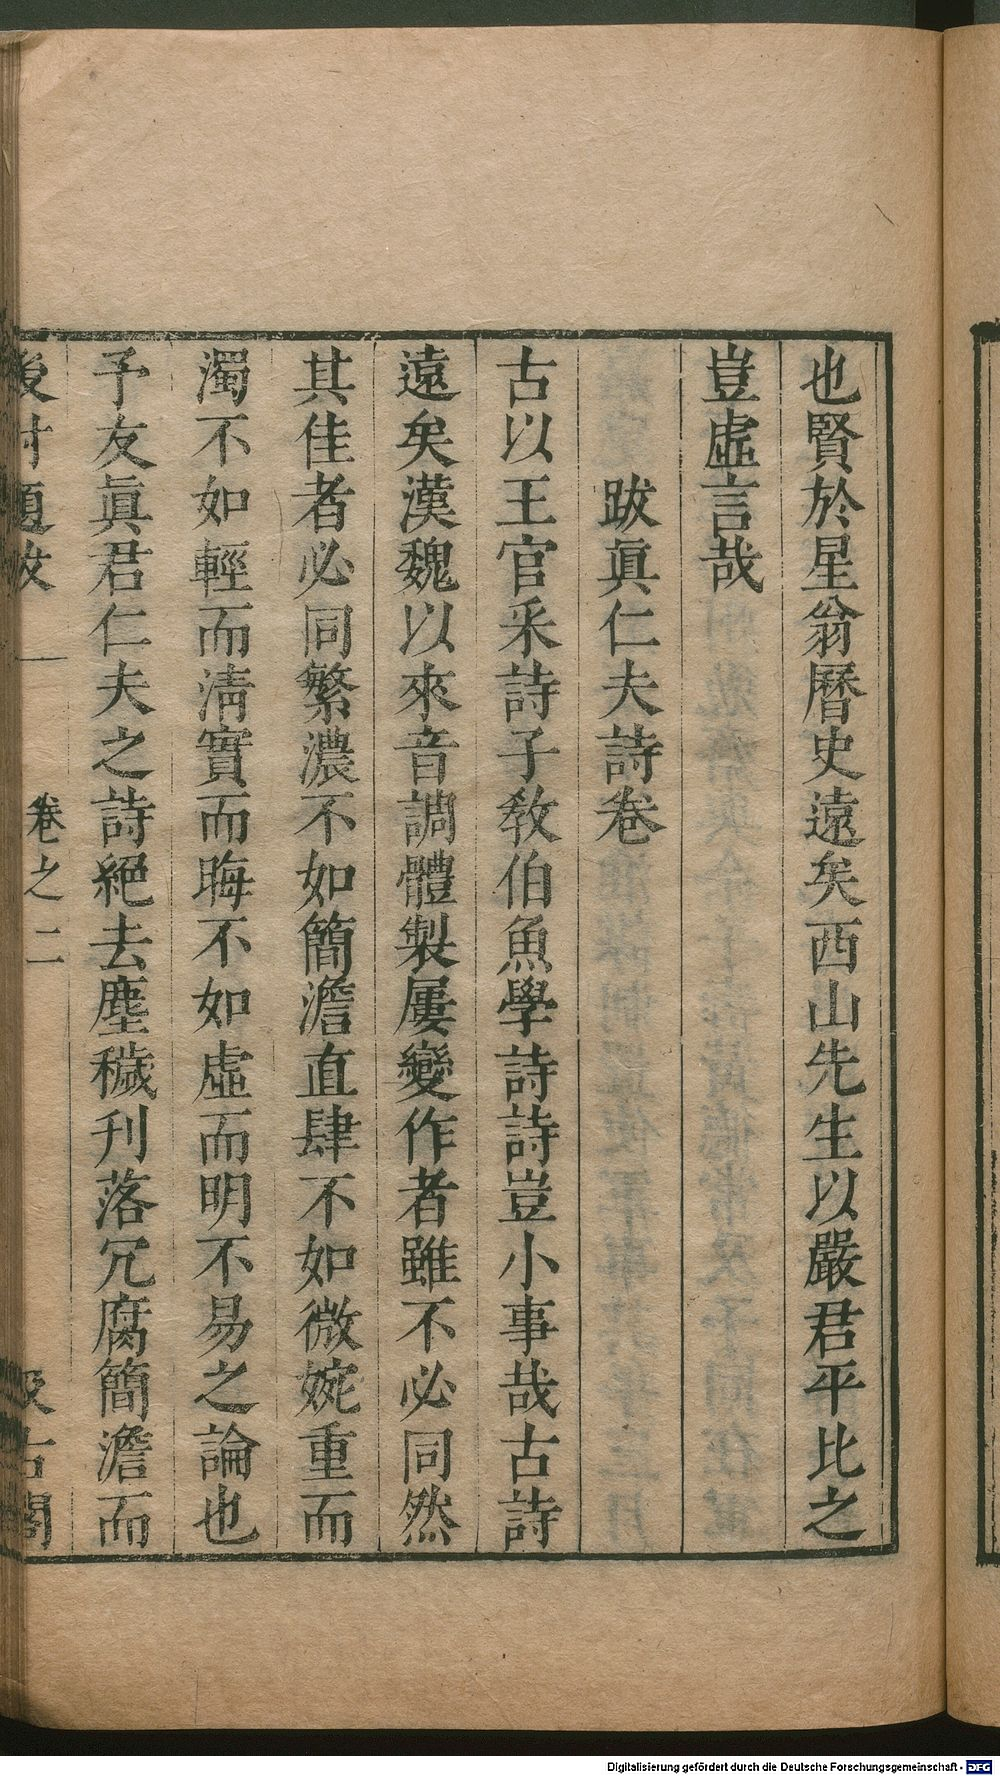 也賢於星翁曆史遠矣西山先生以嚴君平比之
豈虛言哉
跋眞仁夫詩卷
古以王官釆詩子敎伯魚學詩詩豈小事哉古詩
遠矣漢魏以來音調體製屢變作者雖不必同然
其佳者必同繁濃不如簡澹直肆不如微婉重而
濁不如輕而淸實而晦不如虛而明不易之論也
予友眞君仁夫之詩絕去塵穢刋落冗腐簡澹而
後村題跋 卷之二 汲古閣
Digitalisierung gefördert durch die Deutsche Forschungsgemeinschaft - DFG